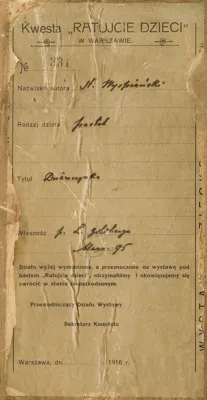 Kwesta „RATUJCIE DZIECI"
W WARSZAWIE.
№ 331
Nazwisko autora St. Wyspiański
Rodzaj dzieła pastel
Tytuł Dziewczynka
Własność p. L. Goldberga
95
Dzieło wyżej wymienione, a przeznaczone na wystawę pod
hasłem „Ratujcie dzieci", otrzymaliśmy i obowiązujemy się
zwrócić w stanie nieuszkodzonym.
Przewodniczący Działu Wystawy
Sekretarz Komitetu
Warszawa, dn. 1916 r.